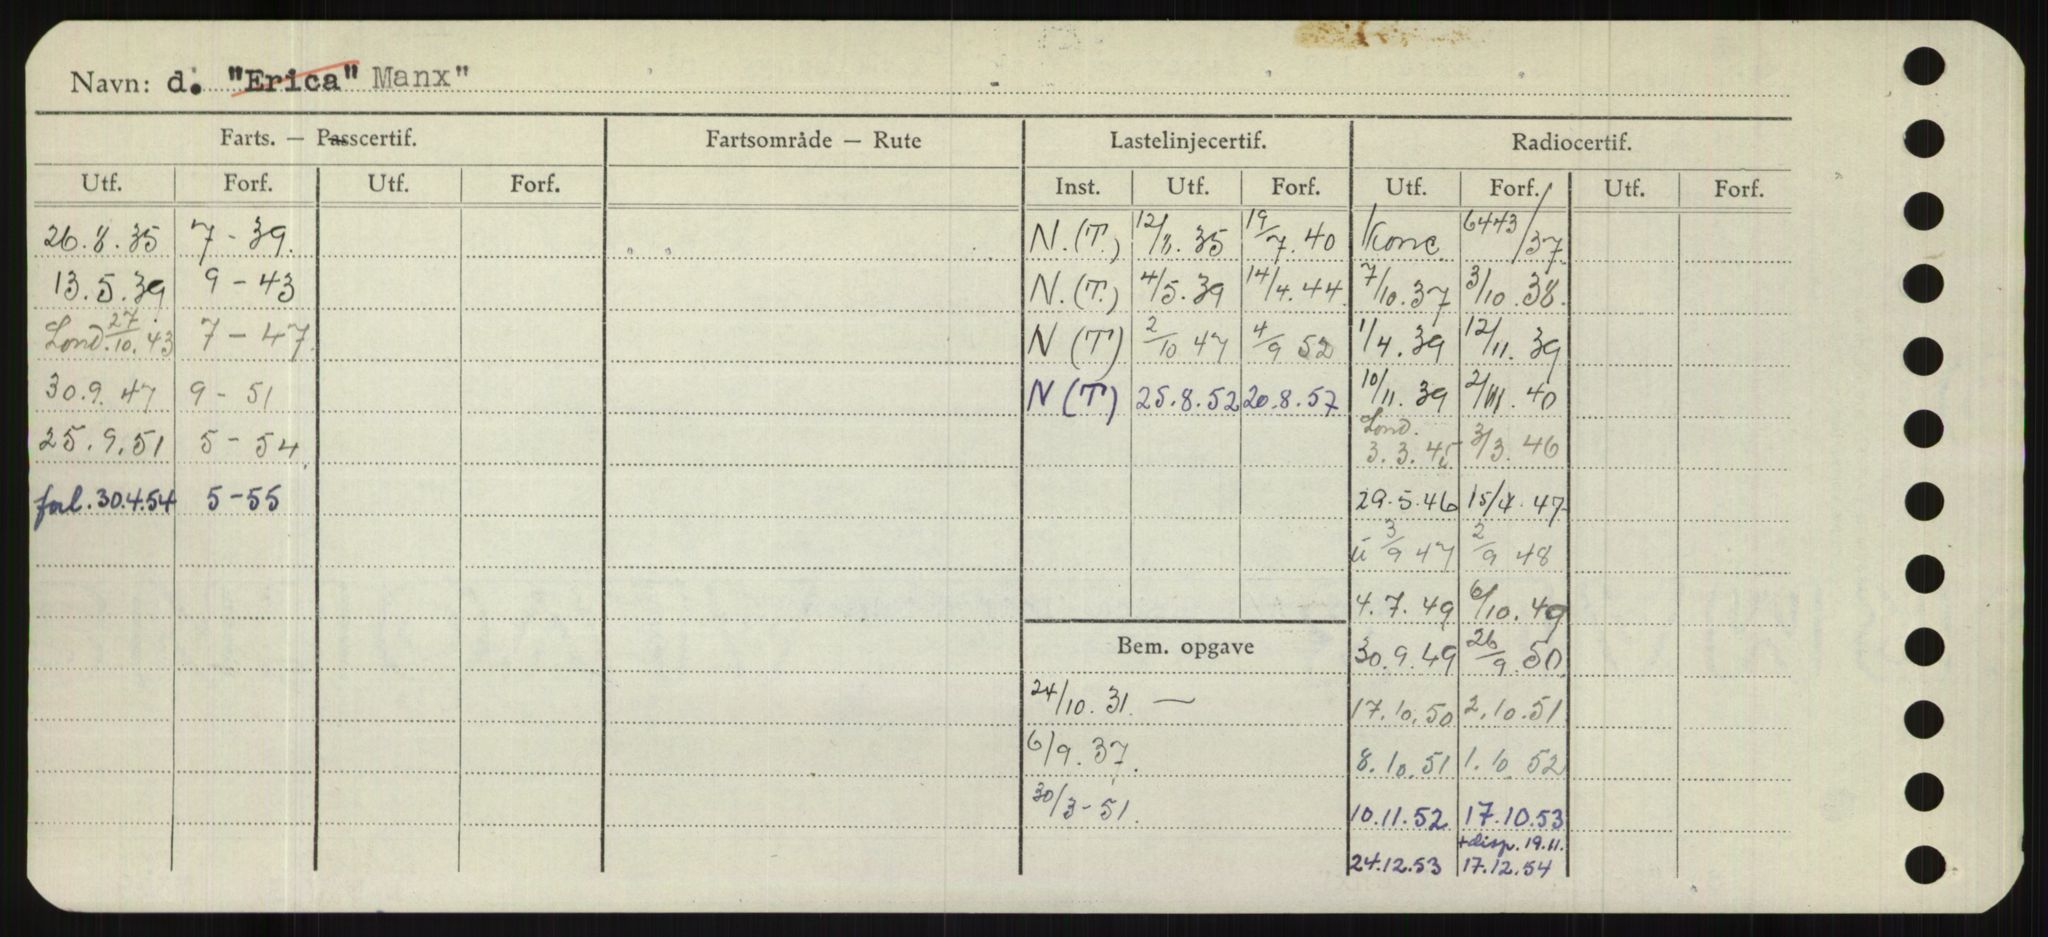 Navn: d. "Erica" Manx"
Farts. — Passcertif. Fartsområde — Rute Lastelinjecertif. Radiocertif.
Utf. Forf. Utf. Forf. Inst. Utf. Forf. Utf. Forf. Utf. Forf.
26.8.35 7 - 39. N.(T.) 12/8.35 19/7.40 Konc. 6443/37
13.5.39 9 - 43 N.(T.) 4/5.39 14/4.44 7/10.37 3/10.38.
Lond. 27/10.43 7 - 47 N (T) 2/10 47 4/9 52 1/4.39 12/11.39
30.9.47 9 - 51 N (T) 25.8.52 20.8.57 10/11.39 40
25.9.51 5 - 54 Lond. 3.3.45 3/3.46
forl.30.4.54 5-55 29.5.46 15/4.47
ü 3/9 47 2/9 48
4.7.49 6/10.49
Bem. opgave 30.9.49 26/9.50
24/10.31. — 17.10.50 2.10.51
6/9.37. 8.10.51 1.10.52
30/3-51. 10.11.52 17.10.53
+disp. 19.11.
24.12.53 17.12.54